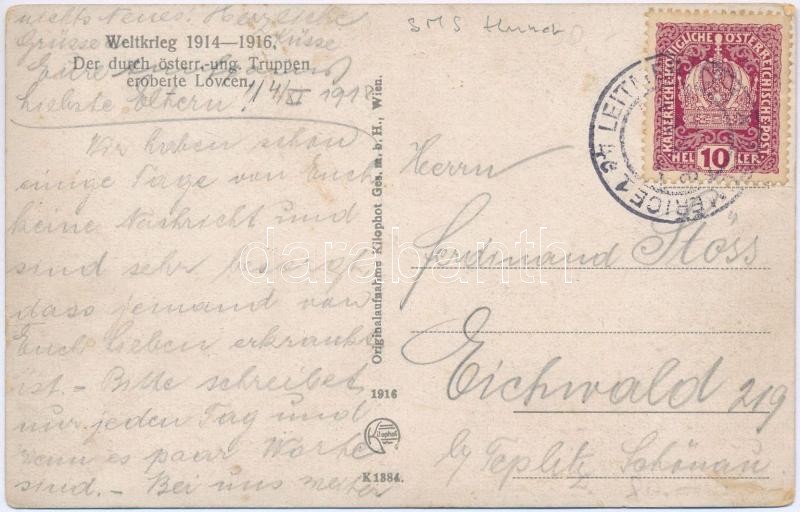 nichts Neues. Herzliche
Grüsse Küsse
Weltkrieg 1914—1916.
Der durch österr.-ung. Truppen
eroberte Lovcen.
Eure
Liebste Eltern! 14/XI 191
Wir haben schon
einige Tage von Euch
keine Nachricht und
sind sehr besorgt
dass jemand von
Euch Lieben erkrankt
ist. - Bitte schreibet
nur jeden Tag und
wenn es paar Worte
sind. - Bei uns weiter
Originalaufnahme Kilophot Ges. m. b. H., Wien.
1916
Kilophot
K 1384.
SMS
KAISERLICHE KÖNIGLICHE ÖSTERREICHISCHE POST
HEL 10 LER
LEITM
MĚŘICE 1
Herrn
Ferdinand Stöss
Eichwald 219
by Teplitz Schönau
darabanth